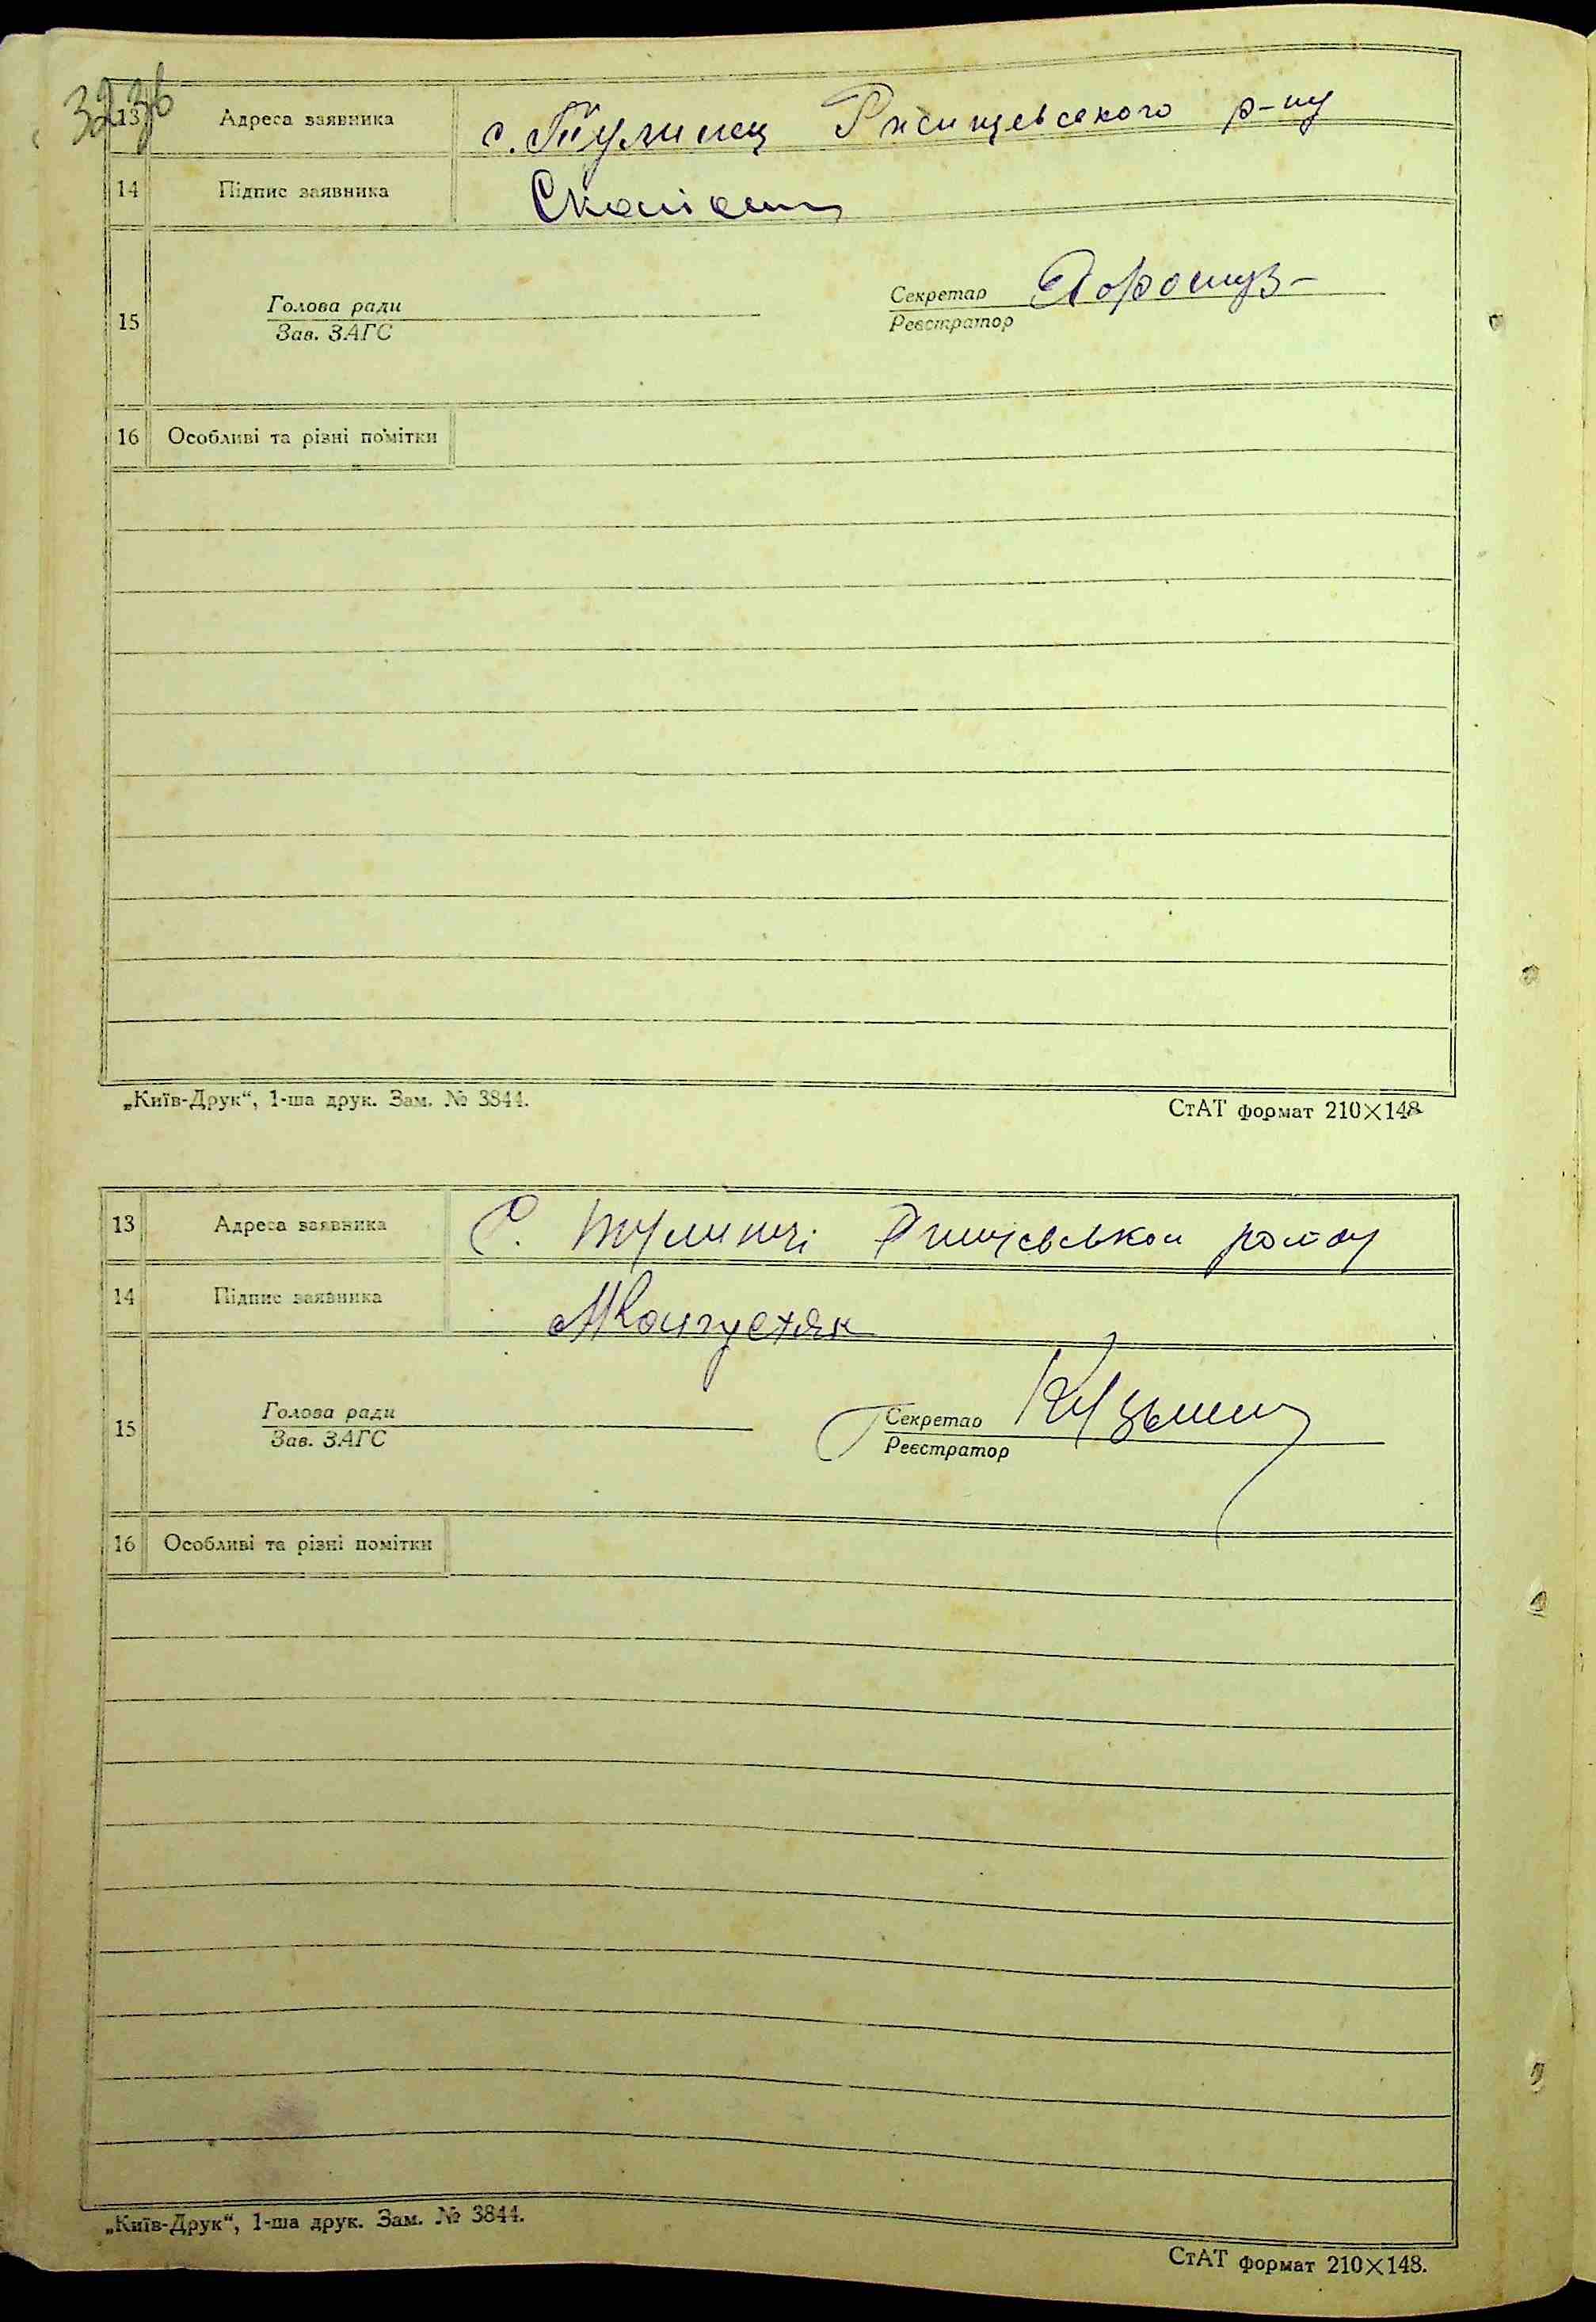 13 Адреса заявника с. Тулинец Ржищевського р-ну
14 Підпис заявника
15 Голова ради
Зав. ЗАГС
Секретар
Реєстратор
16 Особливі та різні помітки
„Київ-Друк“, 1-ша друк. Зам. № 3844.
СтАТ формат 210×148
13 Адреса заявника С. Тулинці району
14 Підпис заявника
15 Голова ради
Зав. ЗАГС
Секретар
Реєстратор
16 Особливі та різні помітки
„Київ-Друк“, 1-ша друк. Зам. № 3844.
СтАТ формат 210×148.